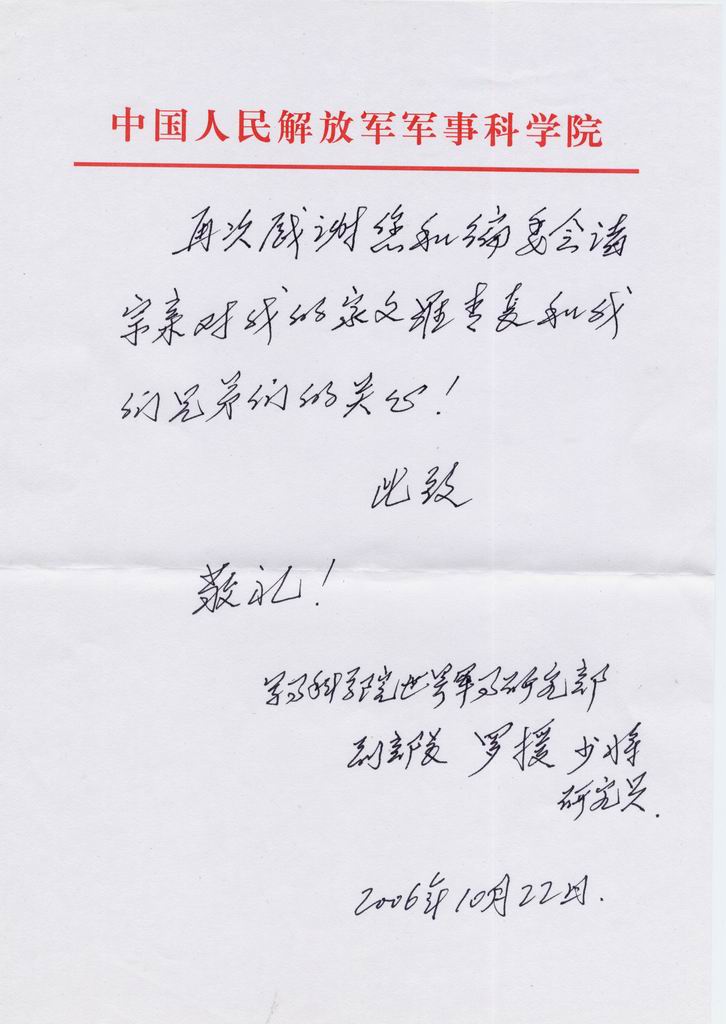 中国人民解放军军事科学院
再次感谢您和编委会诸
宗亲对我的家父罗青长和我
们兄弟们的关心!
此致
敬礼!
军事科学院世界军事研究部
副部长 罗援 少将
研究员.
2006年10月22日.